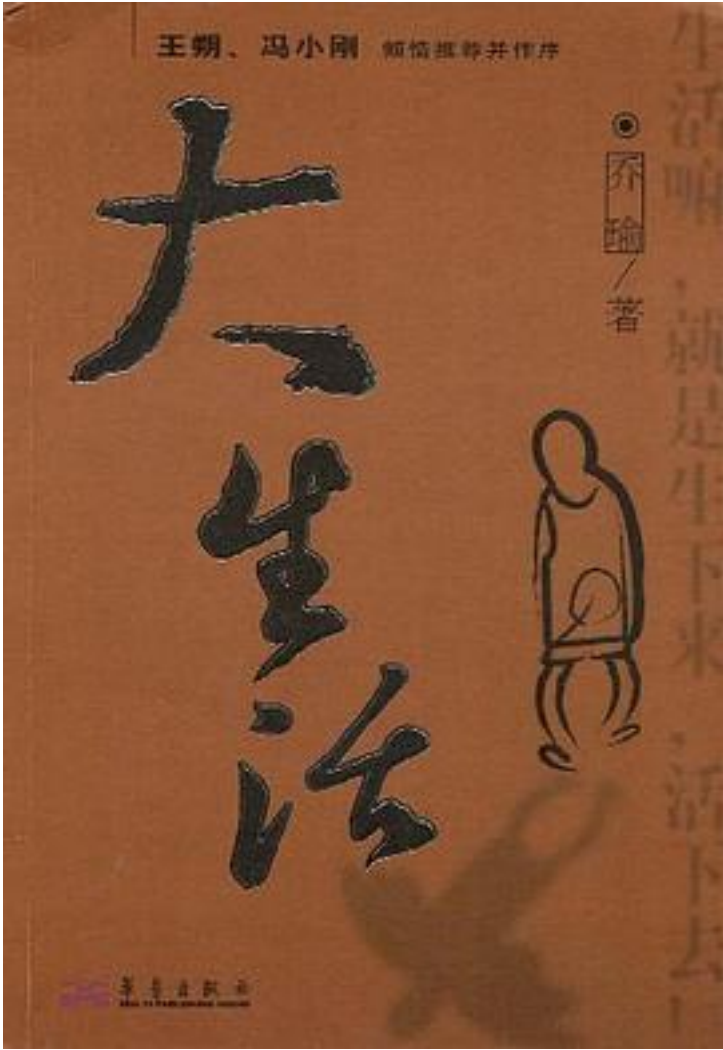 王朔、冯小刚 倾情推荐并作序
大生活
乔瑜/著
生活嘛，就是生下来，活下去！
华艺出版社
HUA YI PUBLISHING HOUSE